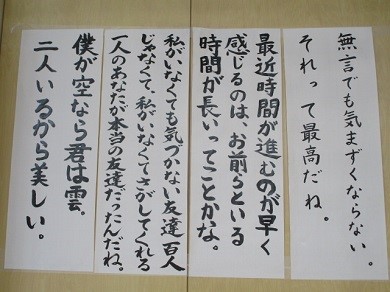 無言でも気まずくならない。
それって最高だね。
最近時間が進むのが早く
感じるのは、お前らといる
時間が長いってことかな。
私がいなくても気づかない友達百人
じゃなくて、私がいなくてさがしてくれる
一人のあなたが本当の友達だったんだね。
僕が空なら君は雲。
二人いるから美しい。